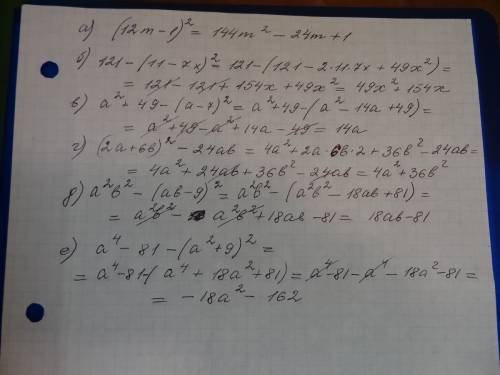 а) (12m-1)² = 144m² - 24m + 1
б) 121 - (11 - 7x)² = 121 - (121 - 2·11·7x + 49x²) =
= 121 - 121 + 154x + 49x² = 49x² + 154x
в) a² + 49 - (a - 7)² = a² + 49 - (a² - 14a + 49) =
= a² + 49 - a² + 14a - 49 = 14a
г) (2a + 6b)² - 24ab = 4a² + 2a·6b·2 + 36b² - 24ab =
= 4a² + 24ab + 36b² - 24ab = 4a² + 36b²
д) a²b² - (ab - 9)² = a²b² - (a²b² - 18ab + 81) =
= a²b² - a²b² + 18ab - 81 = 18ab - 81
е) a⁴ - 81 - (a² + 9)² =
= a⁴ - 81 - (a⁴ + 18a² + 81) = a⁴ - 81 - a⁴ - 18a² - 81 =
= - 18a² - 162